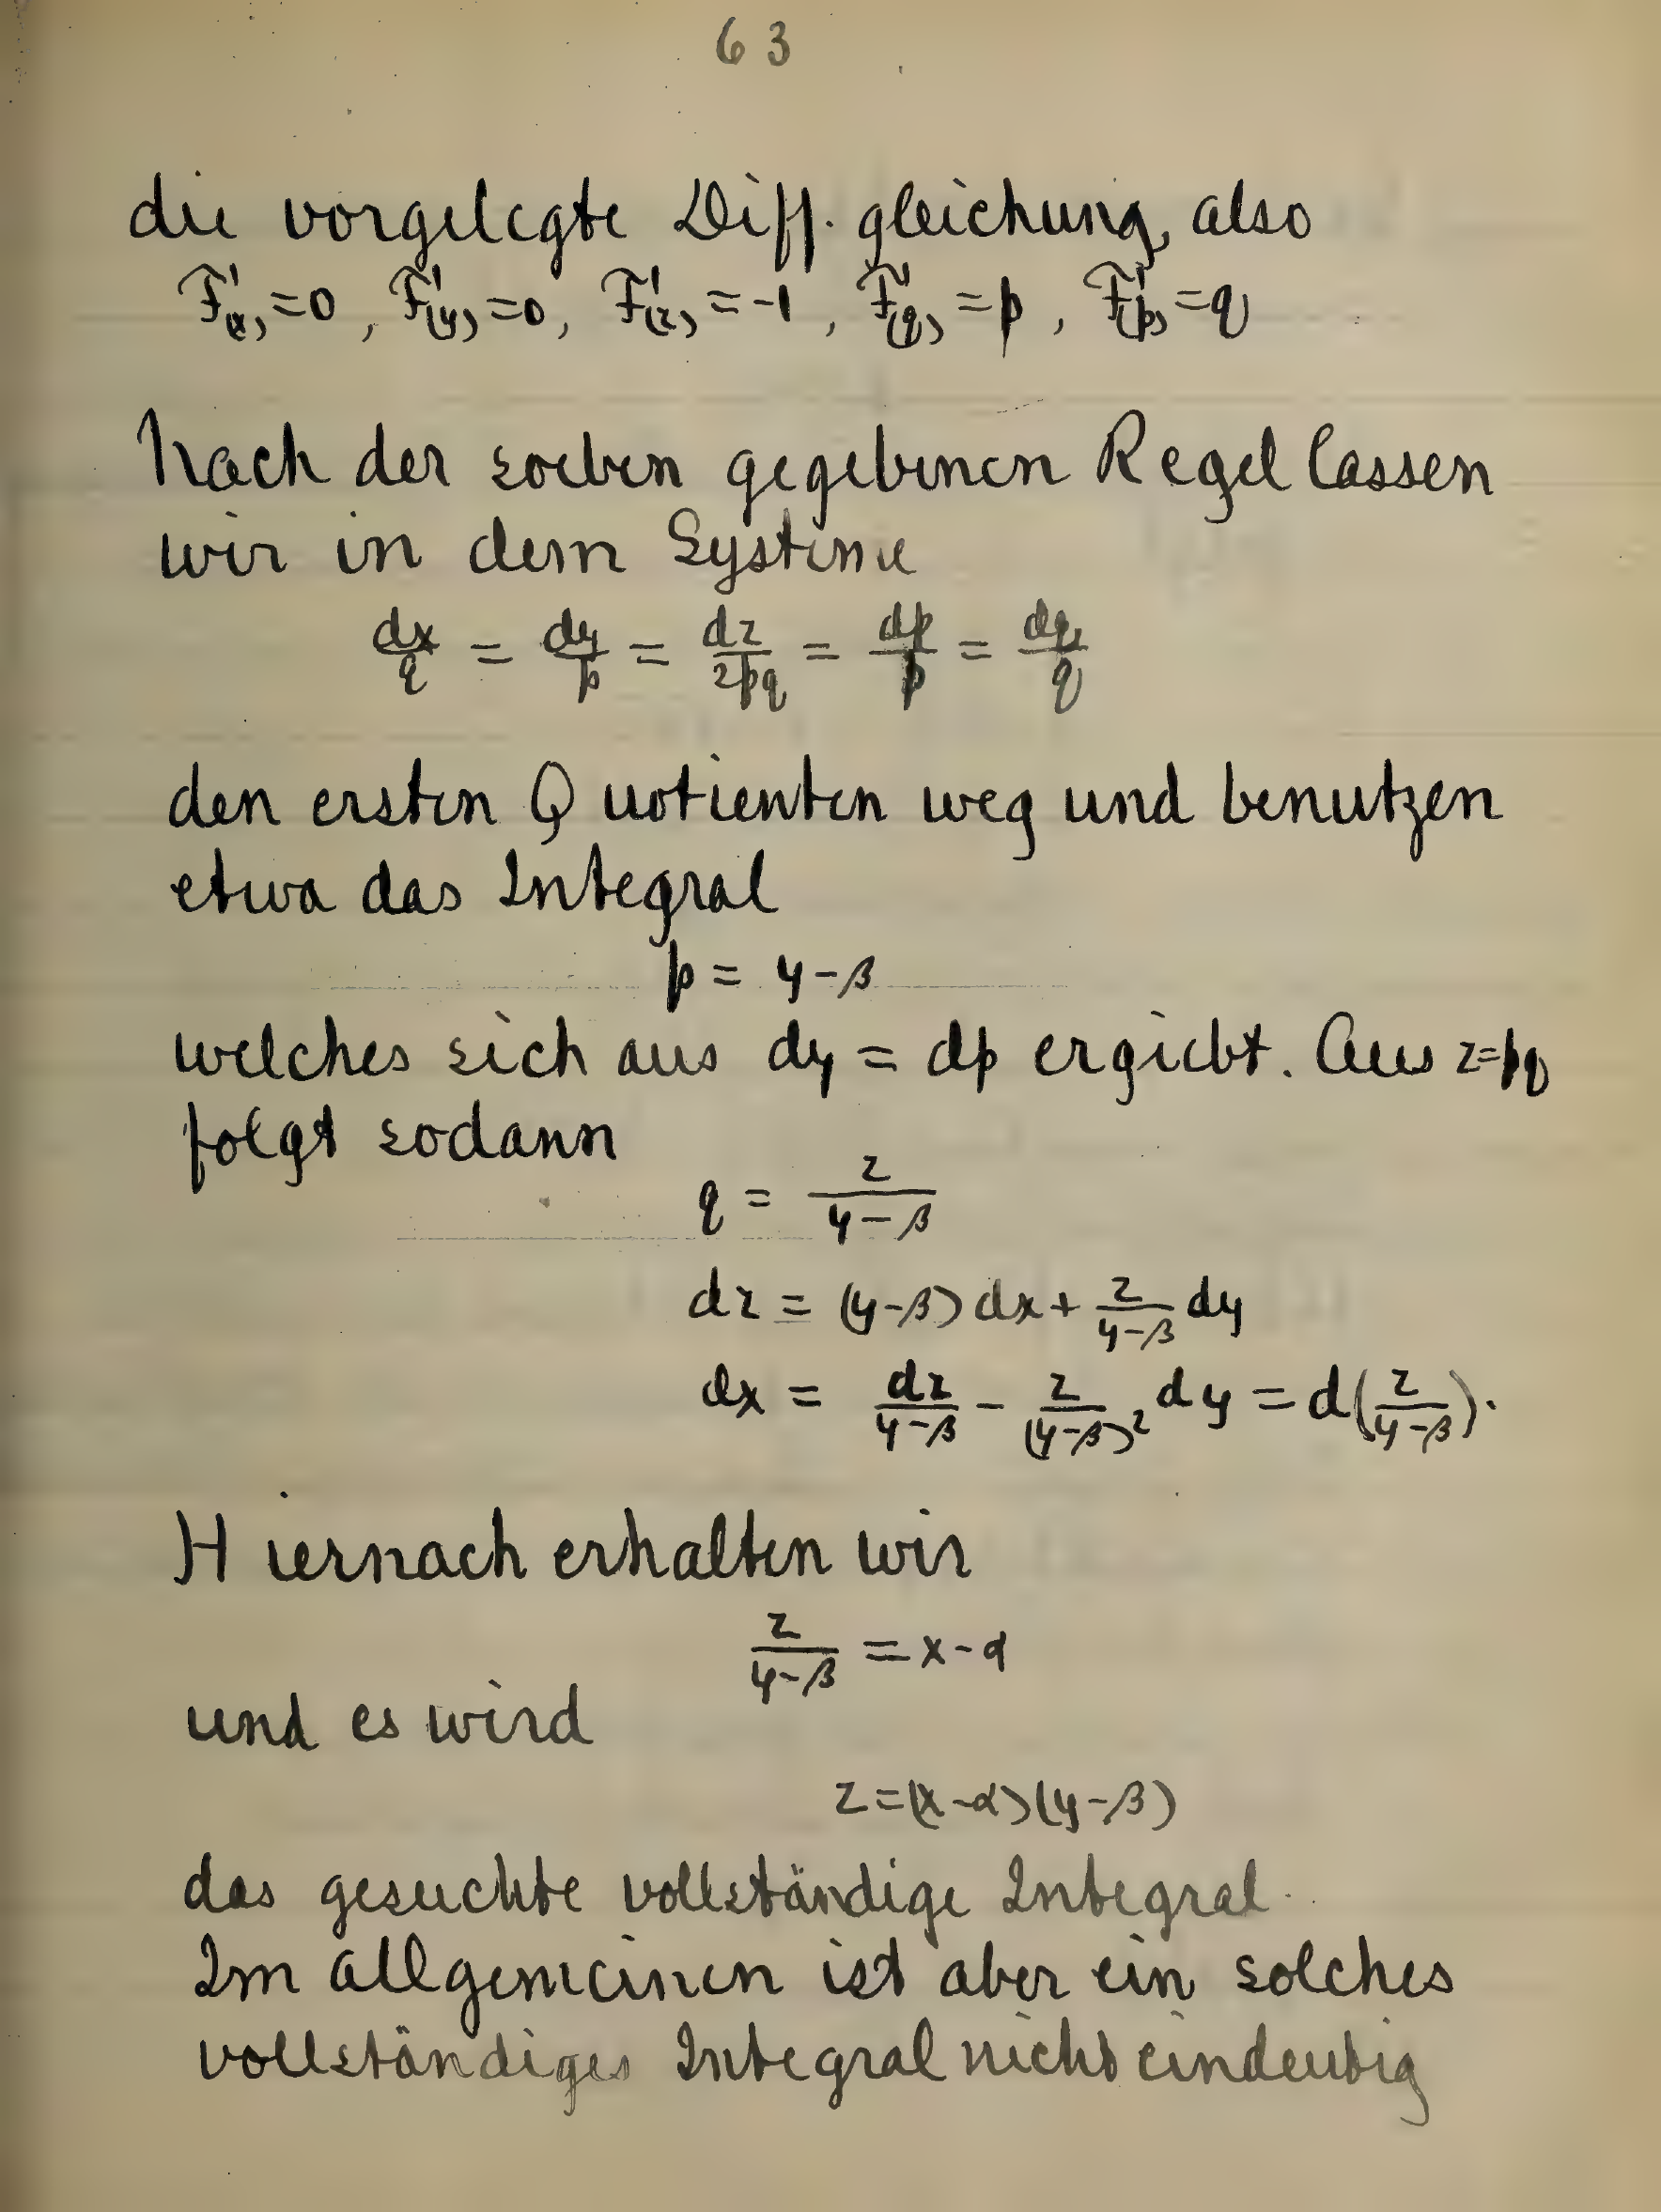 63
die vorgelegte Diff. gleichung, also
F'(x) = 0, F'(y) = 0, F'(z) = -1, F'(q) = p, F'(p) = q
Nach der soeben gegebenen Regel lassen
wir in dem Systeme
dx/q = dy/p = dz/2pq = dp/p = dq/q
den ersten Quotienten weg und benutzen
etwa das Integral
p = y-β
welches sich aus dy = dp ergiebt. Aus z=pq
folgt sodann
q = z/(y-β)
dz = (y-β) dx + z/(y-β) dy
dx = dz/(y-β) - z/(y-β)² dy = d(z/(y-β)).
Hiernach erhalten wir
z/(y-β) = x-α
und es wird
z=(x-α)(y-β)
das gesuchte vollständige Integral.
Im allgemeinen ist aber ein solches
vollständiges Integral nicht eindeutig